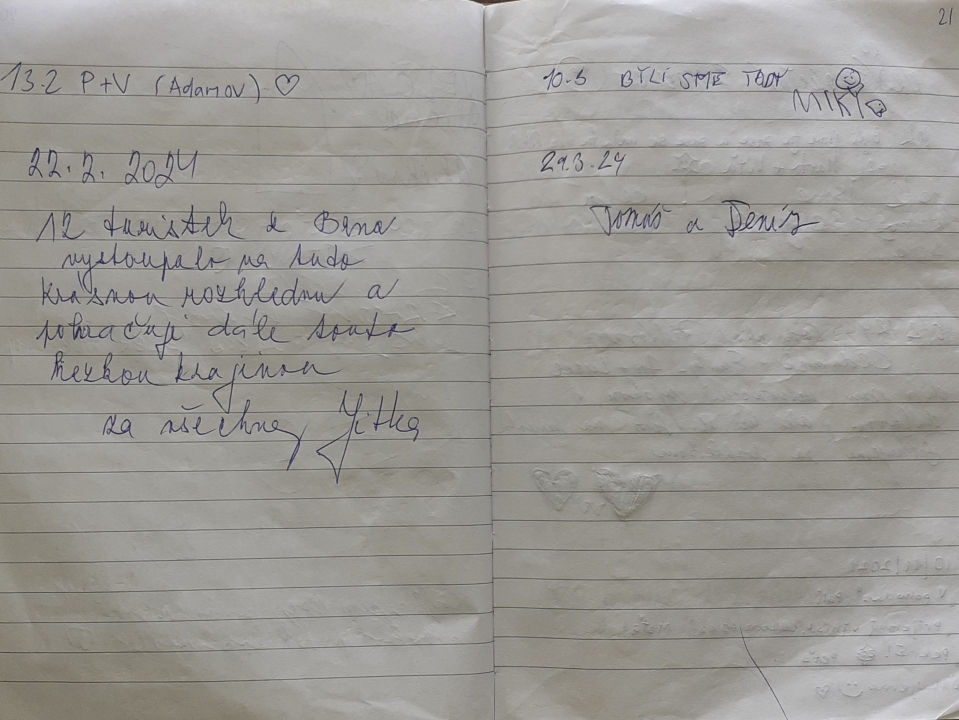 13.2 P+V (Adamov) ♡
22. 2. 2024
12 turistek z Brna
vystoupalo na tuto
krásnou rozhlednu a
pokračují dále touto
hezkou krajinou
za všechny Jitka
21
10.3 BYLI SME TADY
MIKY
29.3.24
Tomáš a Denis